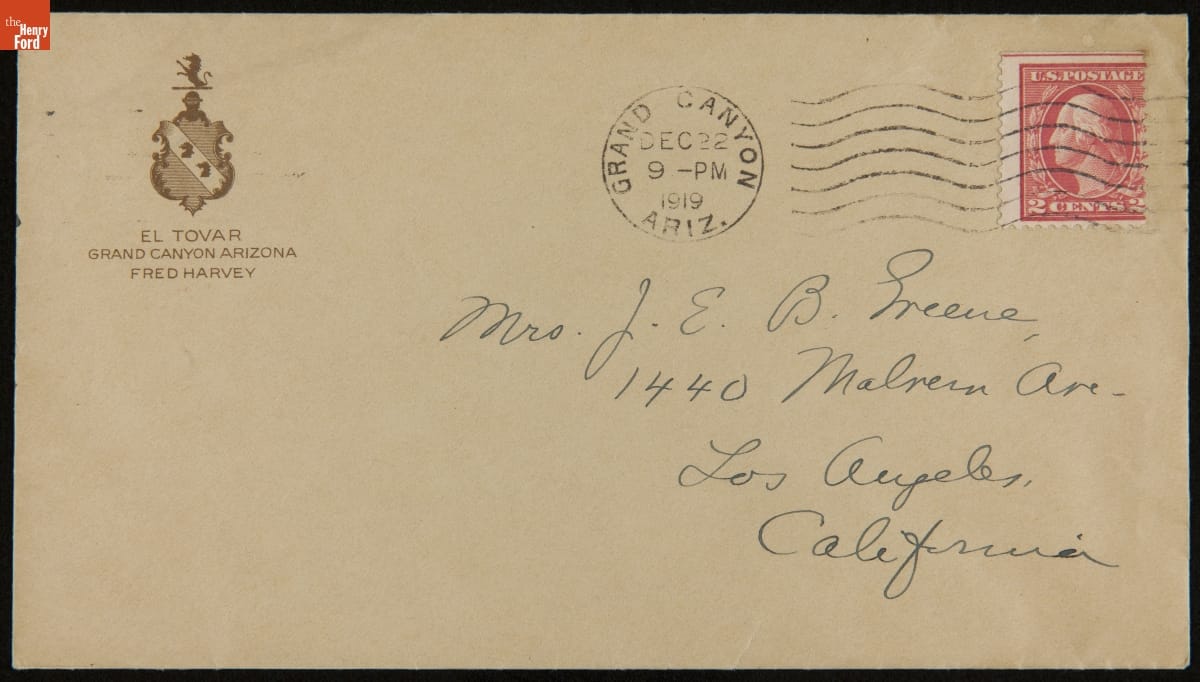 the
Henry
Ford
EL TOVAR
GRAND CANYON ARIZONA
FRED HARVEY
GRAND CANYON
DEC 22
9 -PM
1919
ARIZ.
U.S. POSTAGE
2 CENTS 2
Mrs. J. E. B. Greene,
1440 Malvern Ave-
Los Angeles,
California